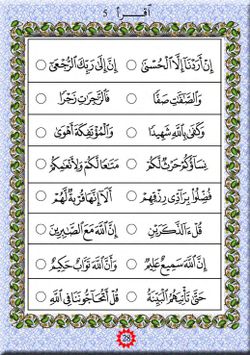 اقرأ 5
إِنْ أَرَدْنَا إِلَّا ٱلْحُسْنَىٰ ○ إِنَّ إِلَىٰ رَبِّكَ ٱلرُّجْعَىٰ ○
وَٱلصَّٰٓفَّٰتِ صَفًّا ○ فَٱلزَّٰجِرَٰتِ زَجْرًا ○
وَكَفَىٰ بِٱللَّهِ شَهِيدًا ○ وَٱلْمُؤْتَفِكَةَ أَهْوَىٰ ○
نِسَآؤُكُمْ حَرْثٌ لَّكُمْ ○ مَتَٰعًا لَّكُمْ وَلِأَنْعَٰمِكُمْ ○
فُضِّلُوا۟ بِرَآدِّى رِزْقِهِمْ ○ أَلَآ إِنَّهَا قُرْبَةٌ لَّهُمْ ○
قُلْ ءَآلذَّكَرَيْنِ ○ إِنَّ ٱللَّهَ مَعَ ٱلصَّٰبِرِينَ ○
إِنَّ ٱللَّهَ سَمِيعٌ عَلِيمٌ ○ وَأَنَّ ٱللَّهَ تَوَّابٌ حَكِيمٌ ○
حَتَّىٰ تَأْتِيَهُمُ ٱلْبَيِّنَةُ ○ قُلْ أَتُحَآجُّونَنَا فِى ٱللَّهِ ○
28